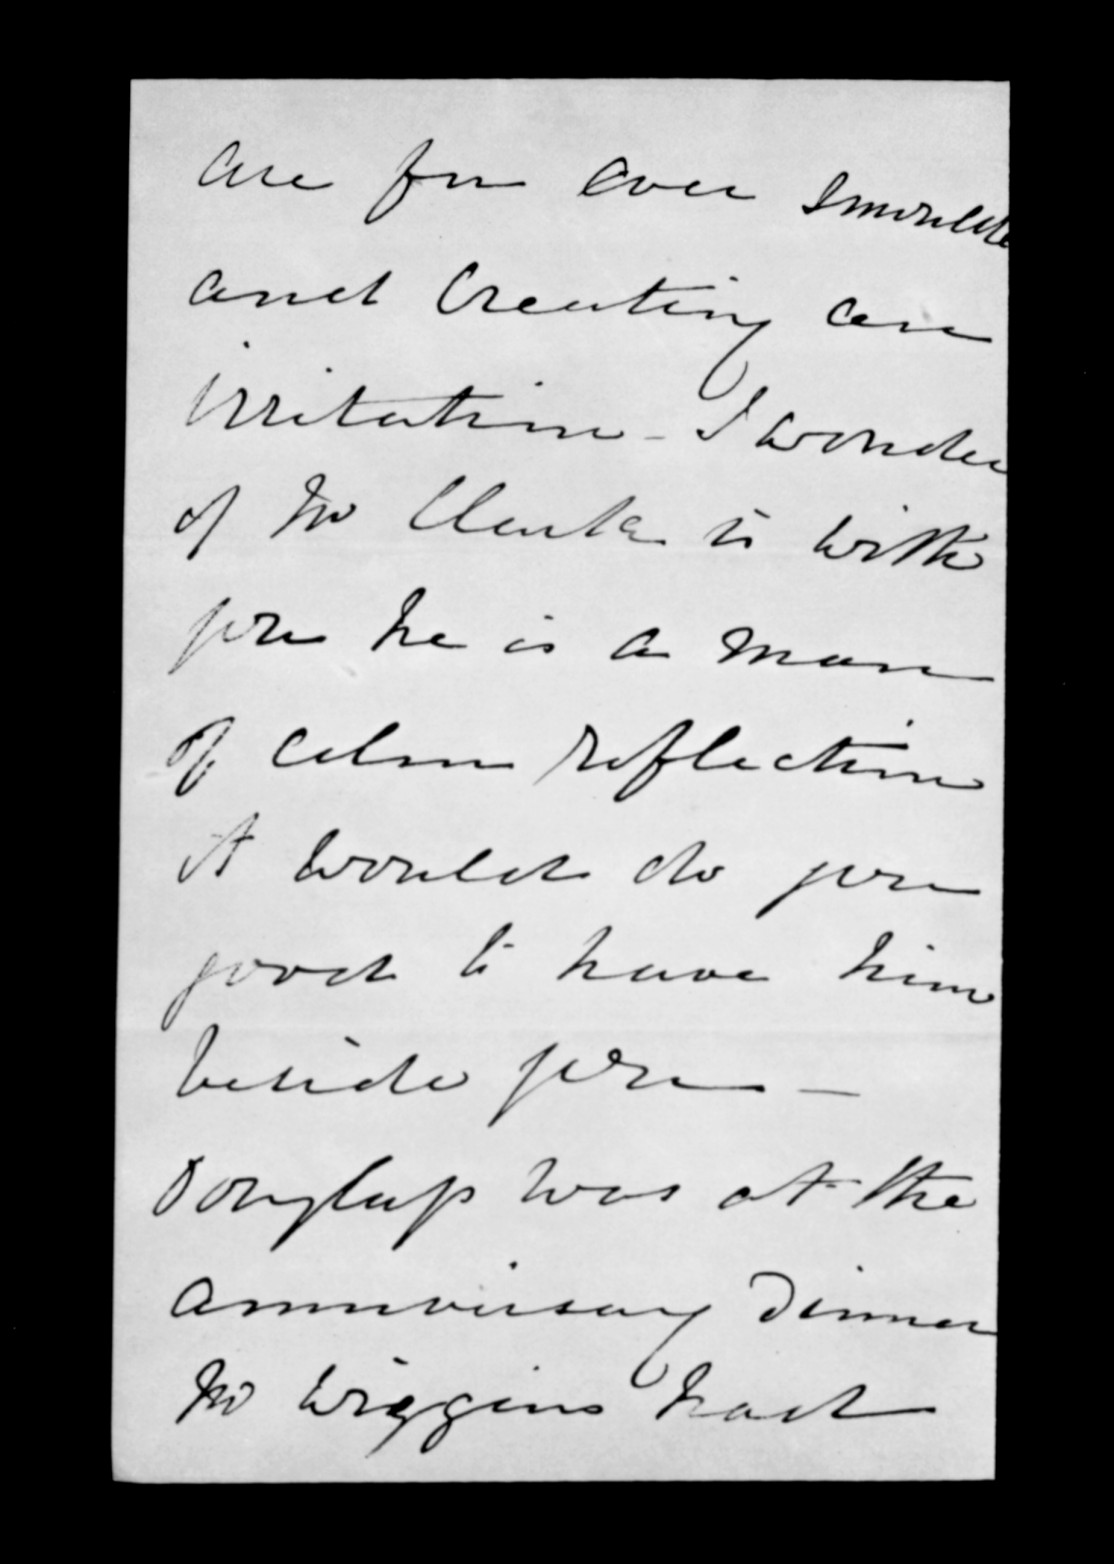 are for ever smoulde
and creating an
irritation - I wonder
if Mr Clarke is with
you he is a man
of calm reflection
it would do you
good to have him
beside you -
Douglass was at the
anniversary dinner
Mr Wiggins had